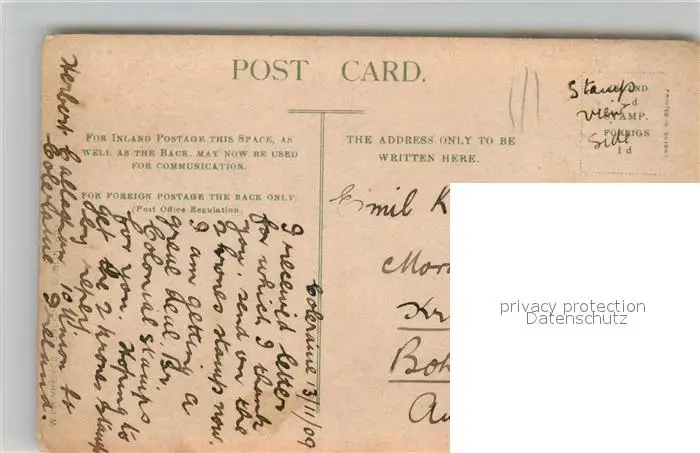 POST CARD.
FOR INLAND POSTAGE THIS SPACE, AS
WELL AS THE BACK, MAY NOW BE USED
FOR COMMUNICATION.
FOR FOREIGN POSTAGE THE BACK ONLY
(Post Office Regulation)
THE ADDRESS ONLY TO BE
WRITTEN HERE.
Stamp
view
side
STAMP.
FOREIGN
1d
Coleraine 13/1/09
I received letter
for which I thank
you. send on the
2 krones stamp now.
I am getting a
great deal Br.
Colonial stamps
for you. Hoping to
get the 2 krones stamp
by reply.
Herbert Callaghan 10 Union St
Coleraine Ireland.
Emil K
Mor
Kr
Boh
Au
privacy protection
Datenschutz